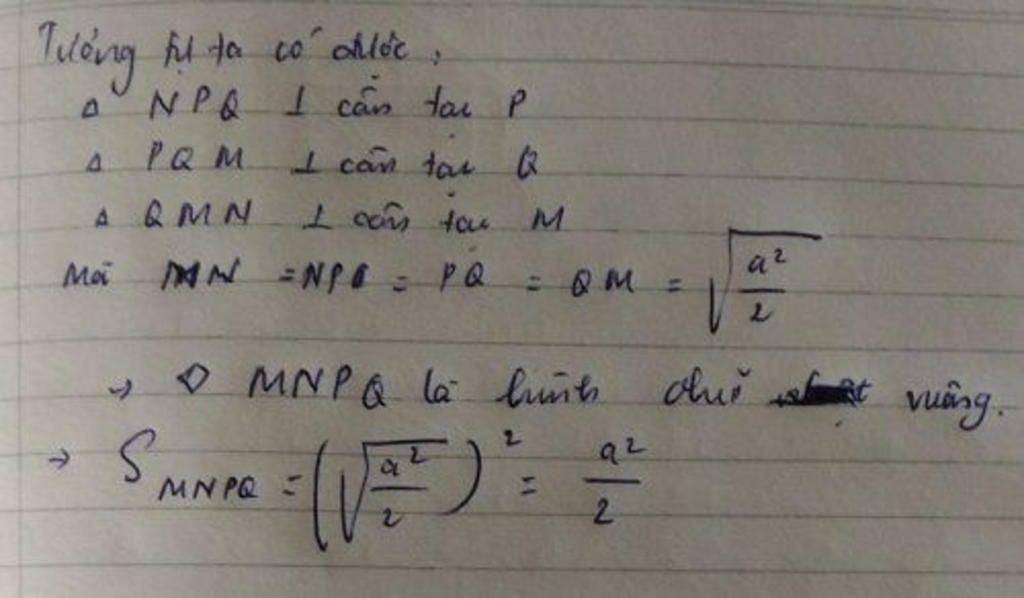 Tương tự ta có được,
Δ NPQ ⊥ cân tại P
Δ PQM ⊥ cân tại Q
Δ QMN ⊥ cân tại M
Mà MN = NP = PQ = QM = √(a²/2)
→ ◇ MNPQ là hình chữ vuông.
→ S MNPQ = (√(a²/2))² = a²/2